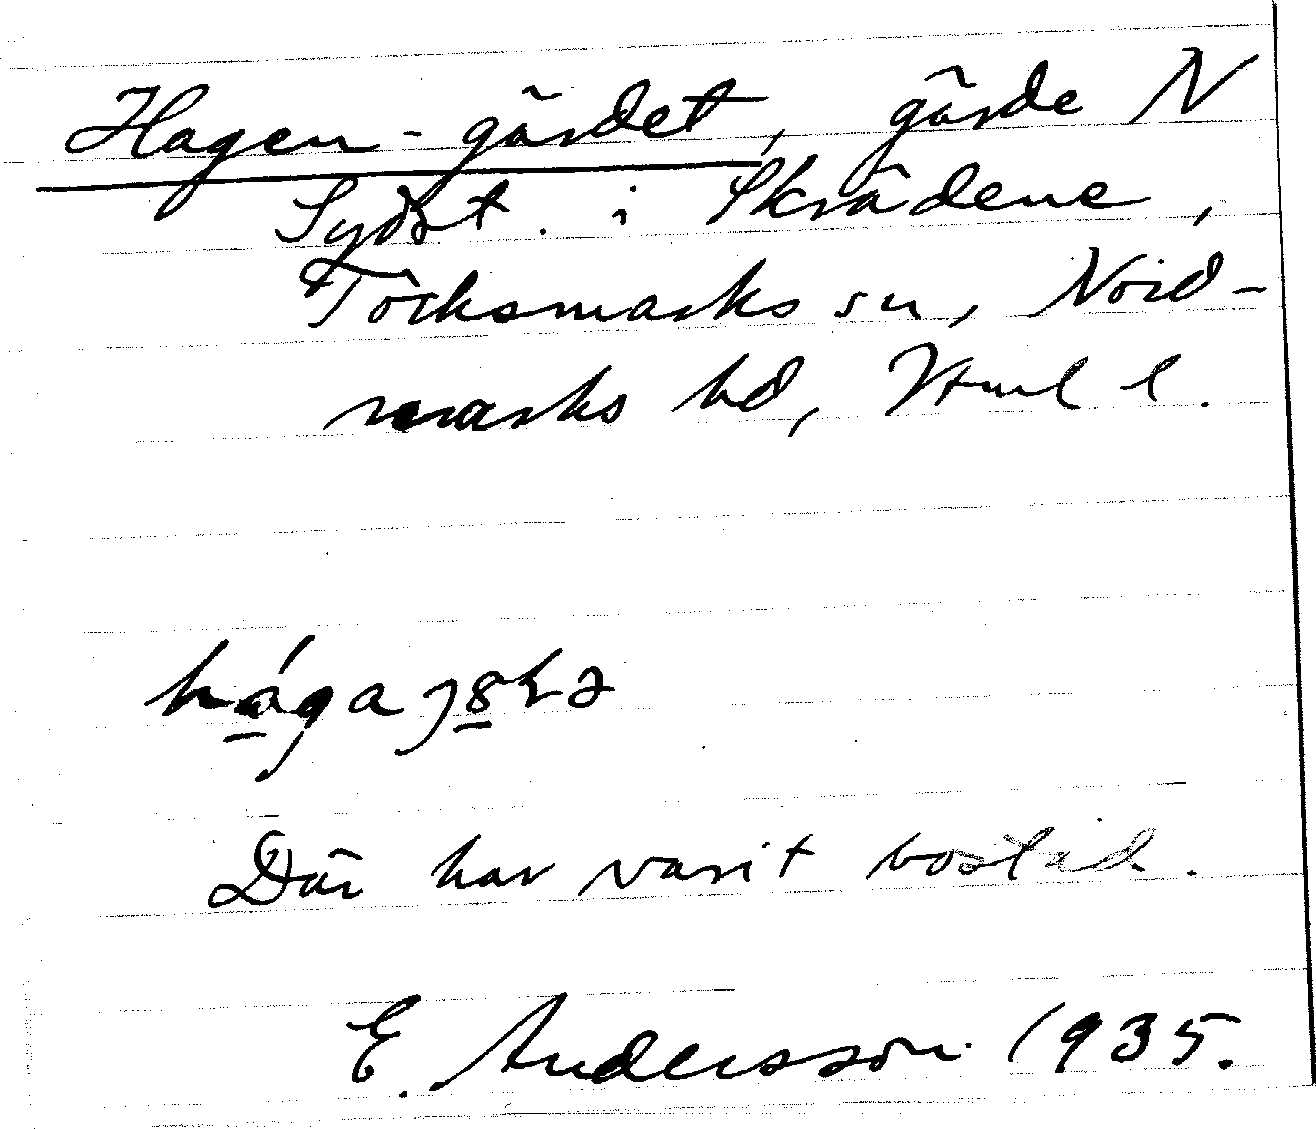 Hagen-gärdet, gärde N
Sydöst. i Skrädene,
Töcksmarks sn, Nord-
marks hd, Vrml l.
Där har varit bostad.
E. Andersson 1935.